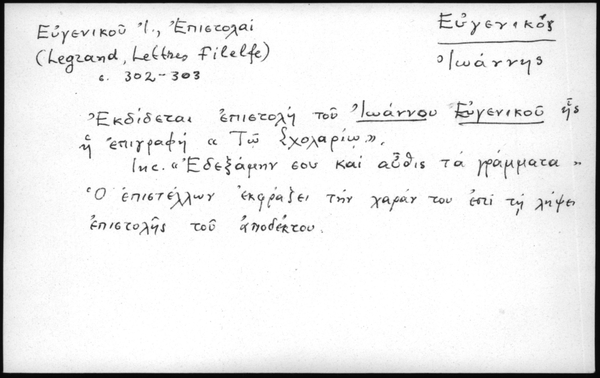 Εὐγενικοῦ Ἰ., Ἐπιστολαί
(Legrand, Lettres Filelfe)
σ. 302-303
Εὐγενικός
Ἰωάννης
Ἐκδίδεται ἐπιστολή τοῦ Ἰωάννου Εὐγενικοῦ ἧς
ἡ ἐπιγραφή « Τῷ Σχολαρίῳ».
Inc. « Ἐδεξάμην σου καί αὖθις τά γράμματα »
Ὁ ἐπιστέλλων ἐκφράζει τήν χαράν του ἐπί τῇ λήψει
ἐπιστολῆς τοῦ ἀποδέκτου.